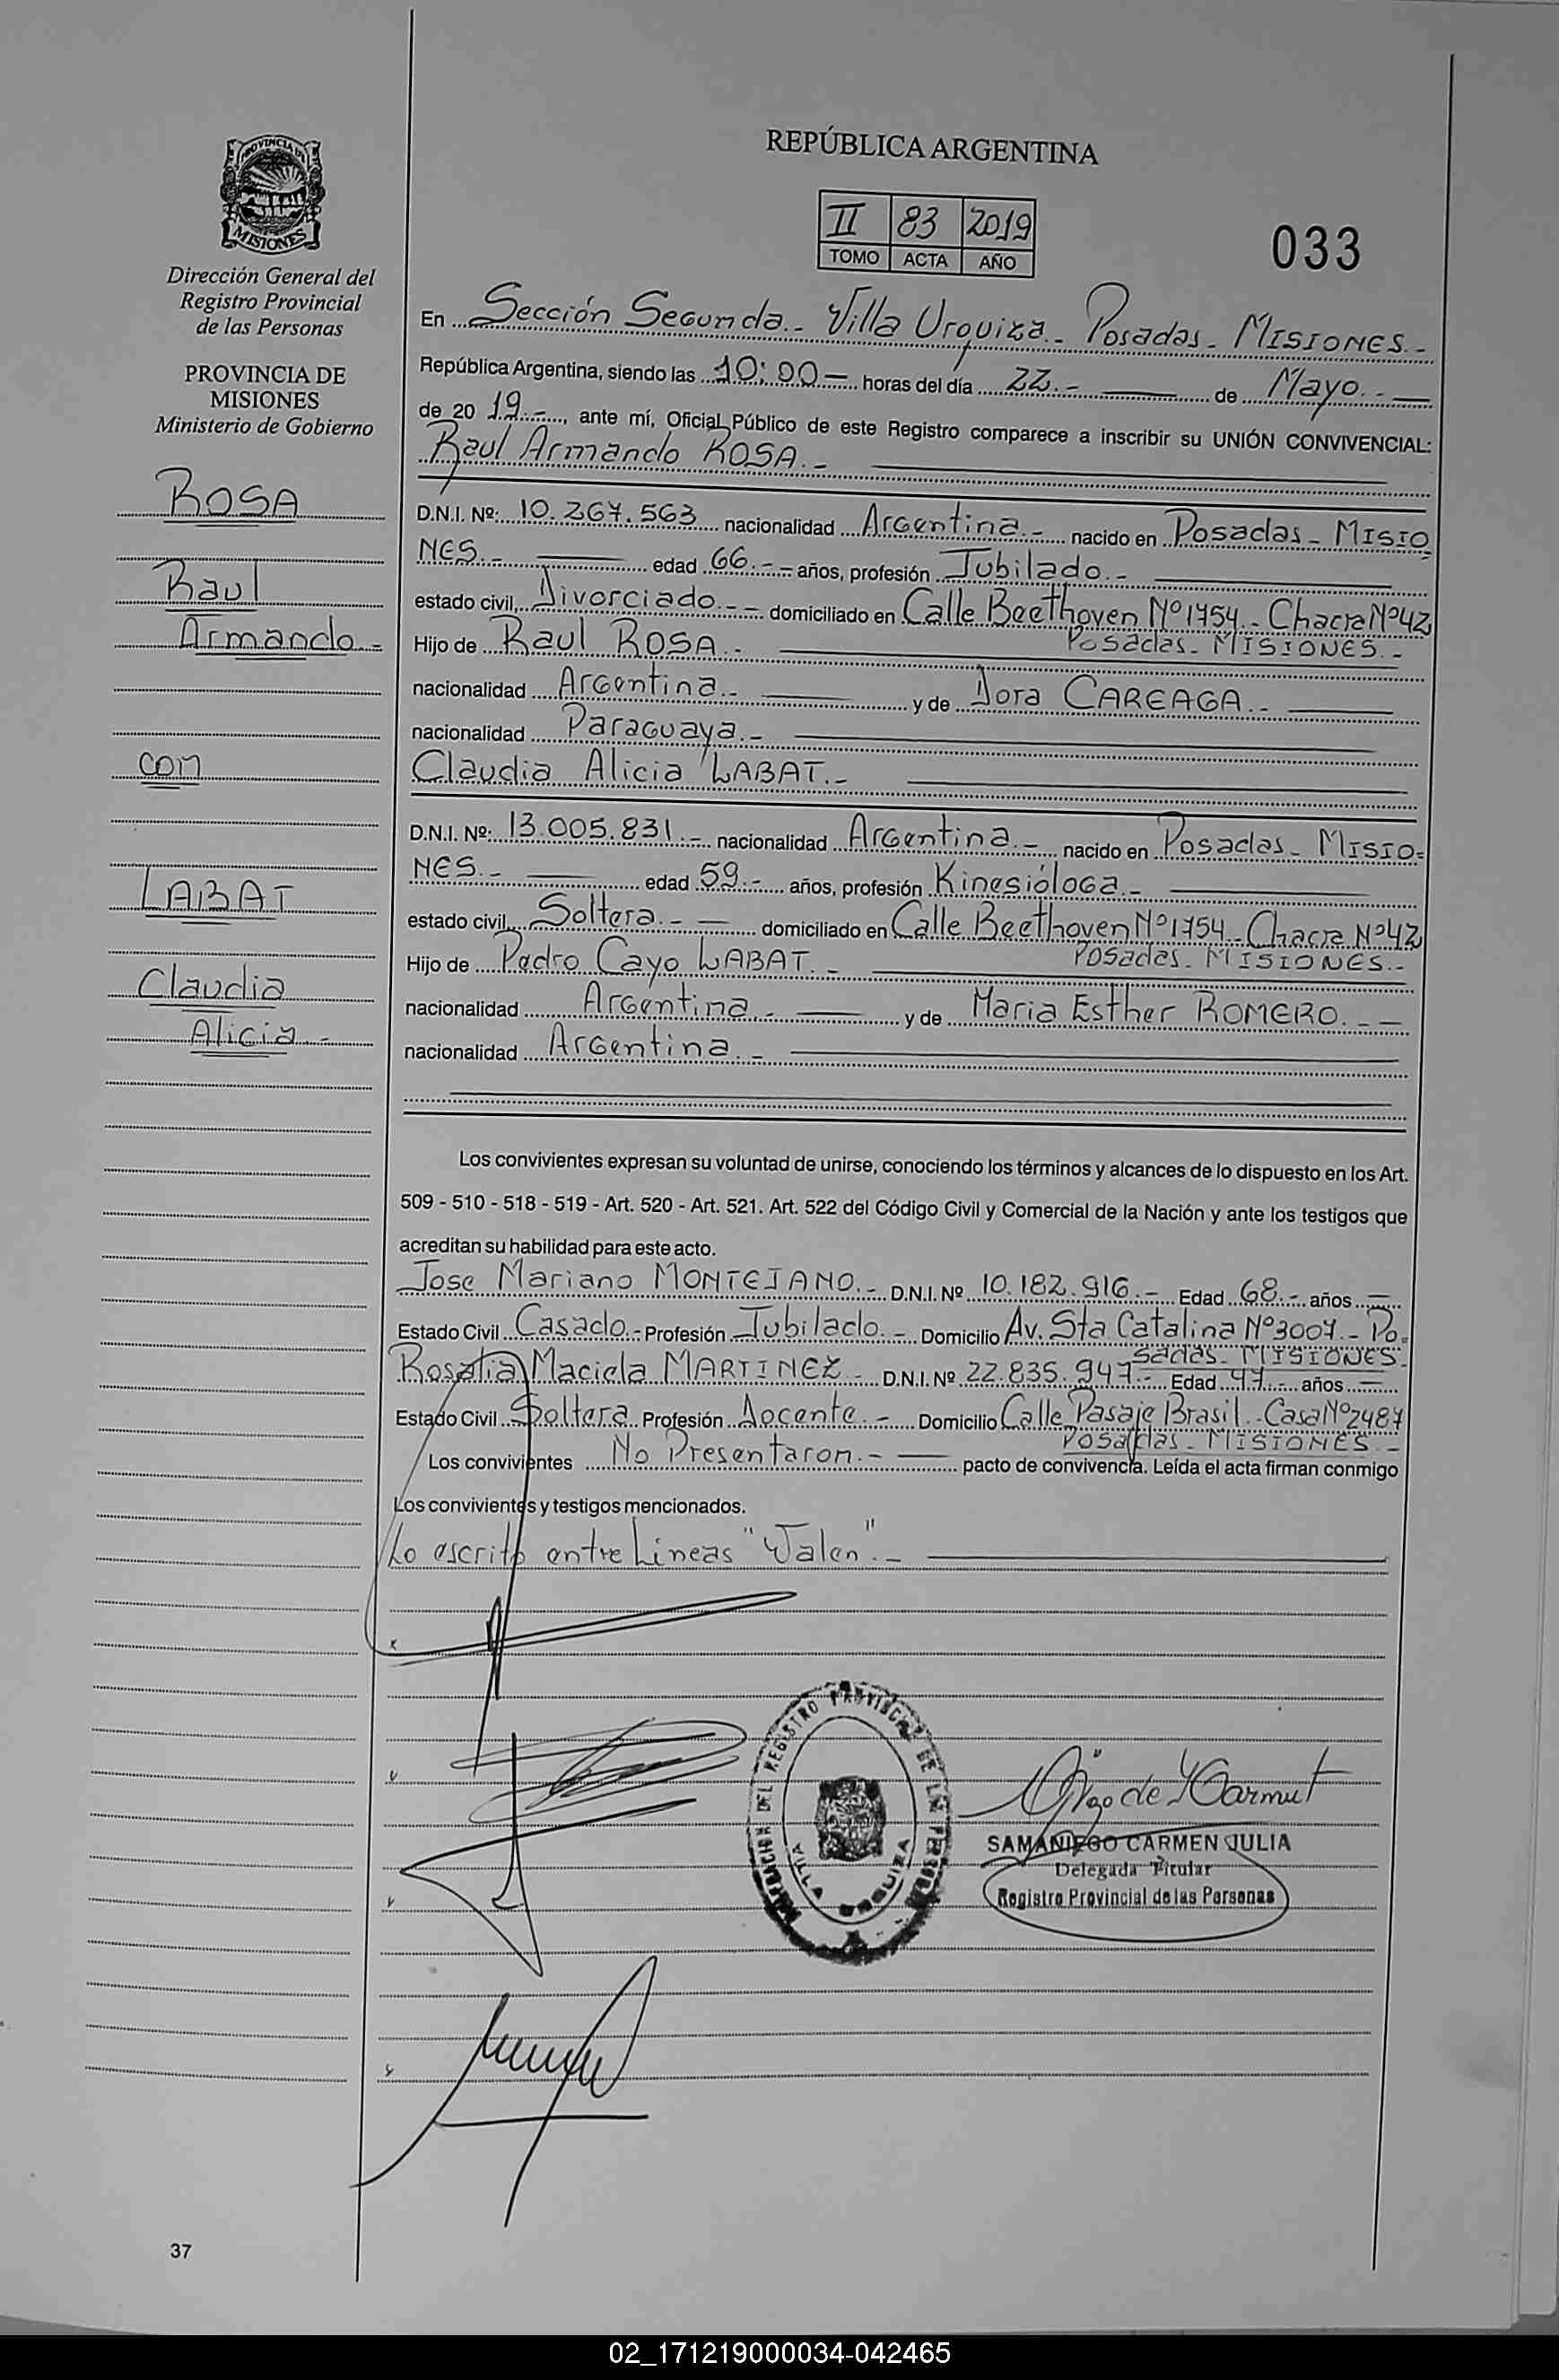 PROVINCIA DE
MISIONES
Dirección General del
Registro Provincial
de las Personas
PROVINCIA DE
MISIONES
Ministerio de Gobierno
ROSA
Raul
Armando.-
con
LABAT
Claudia
Alicia.-
REPÚBLICA ARGENTINA
II 83 2019
TOMO ACTA AÑO
033
En Sección Segunda.- Villa Urquiza.- Posadas- MISIONES.-
República Argentina, siendo las 10:00 — horas del día 22.- de Mayo.-
de 20 19.-, ante mí, Oficial Público de este Registro comparece a inscribir su UNIÓN CONVIVENCIAL:
Raul Armando ROSA.-
D.N.I. Nº: 10.267.563 nacionalidad Argentina.- nacido en Posadas- MISIO
NES.- edad 66.- años, profesión Jubilado.-
estado civil, Divorciado.- domiciliado en Calle Beethoven Nº 1754.- Chacra Nº 42
Posadas- MISIONES.-
Hijo de Raul ROSA.-
nacionalidad Argentina.- y de Dora CAREAGA.-
nacionalidad Paraguaya.-
Claudia Alicia LABAT.-
D.N.I. Nº: 13.005.831.- nacionalidad Argentina.- nacido en Posadas- MISIO-
NES.- edad 59.- años, profesión Kinesióloga.-
estado civil, Soltera.- domiciliado en Calle Beethoven Nº 1754.- Chacra Nº 42
Posadas- MISIONES.-
Hijo de Pedro Cayo LABAT.-
nacionalidad Argentina.- y de Maria Esther ROMERO.-
nacionalidad Argentina.-
Los convivientes expresan su voluntad de unirse, conociendo los términos y alcances de lo dispuesto en los Art.
509 - 510 - 518 - 519 - Art. 520 - Art. 521. Art. 522 del Código Civil y Comercial de la Nación y ante los testigos que
acreditan su habilidad para este acto.
Jose Mariano MONTEJANO.- D.N.I. Nº 10.182.916.- Edad 68.- años
Estado Civil Casado.- Profesión Jubilado.- Domicilio Av. Sta Catalina Nº 3007.- Po-
sadas- MISIONES.
Rosalia Maciela MARTINEZ.- D.N.I. Nº 22.835.947- Edad 47.- años
Estado Civil Soltera Profesión Docente.- Domicilio Calle Pasaje Brasil.- Casa Nº 2487
Posadas- MISIONES.-
Los convivientes No Presentaron.- pacto de convivencia. Leída el acta firman conmigo
Los convivientes y testigos mencionados.
Lo escrito entre Lineas "Valen".-
SAMANIEGO CARMEN JULIA
Delegada Titular
Registro Provincial de las Personas
37
02_171219000034-042465